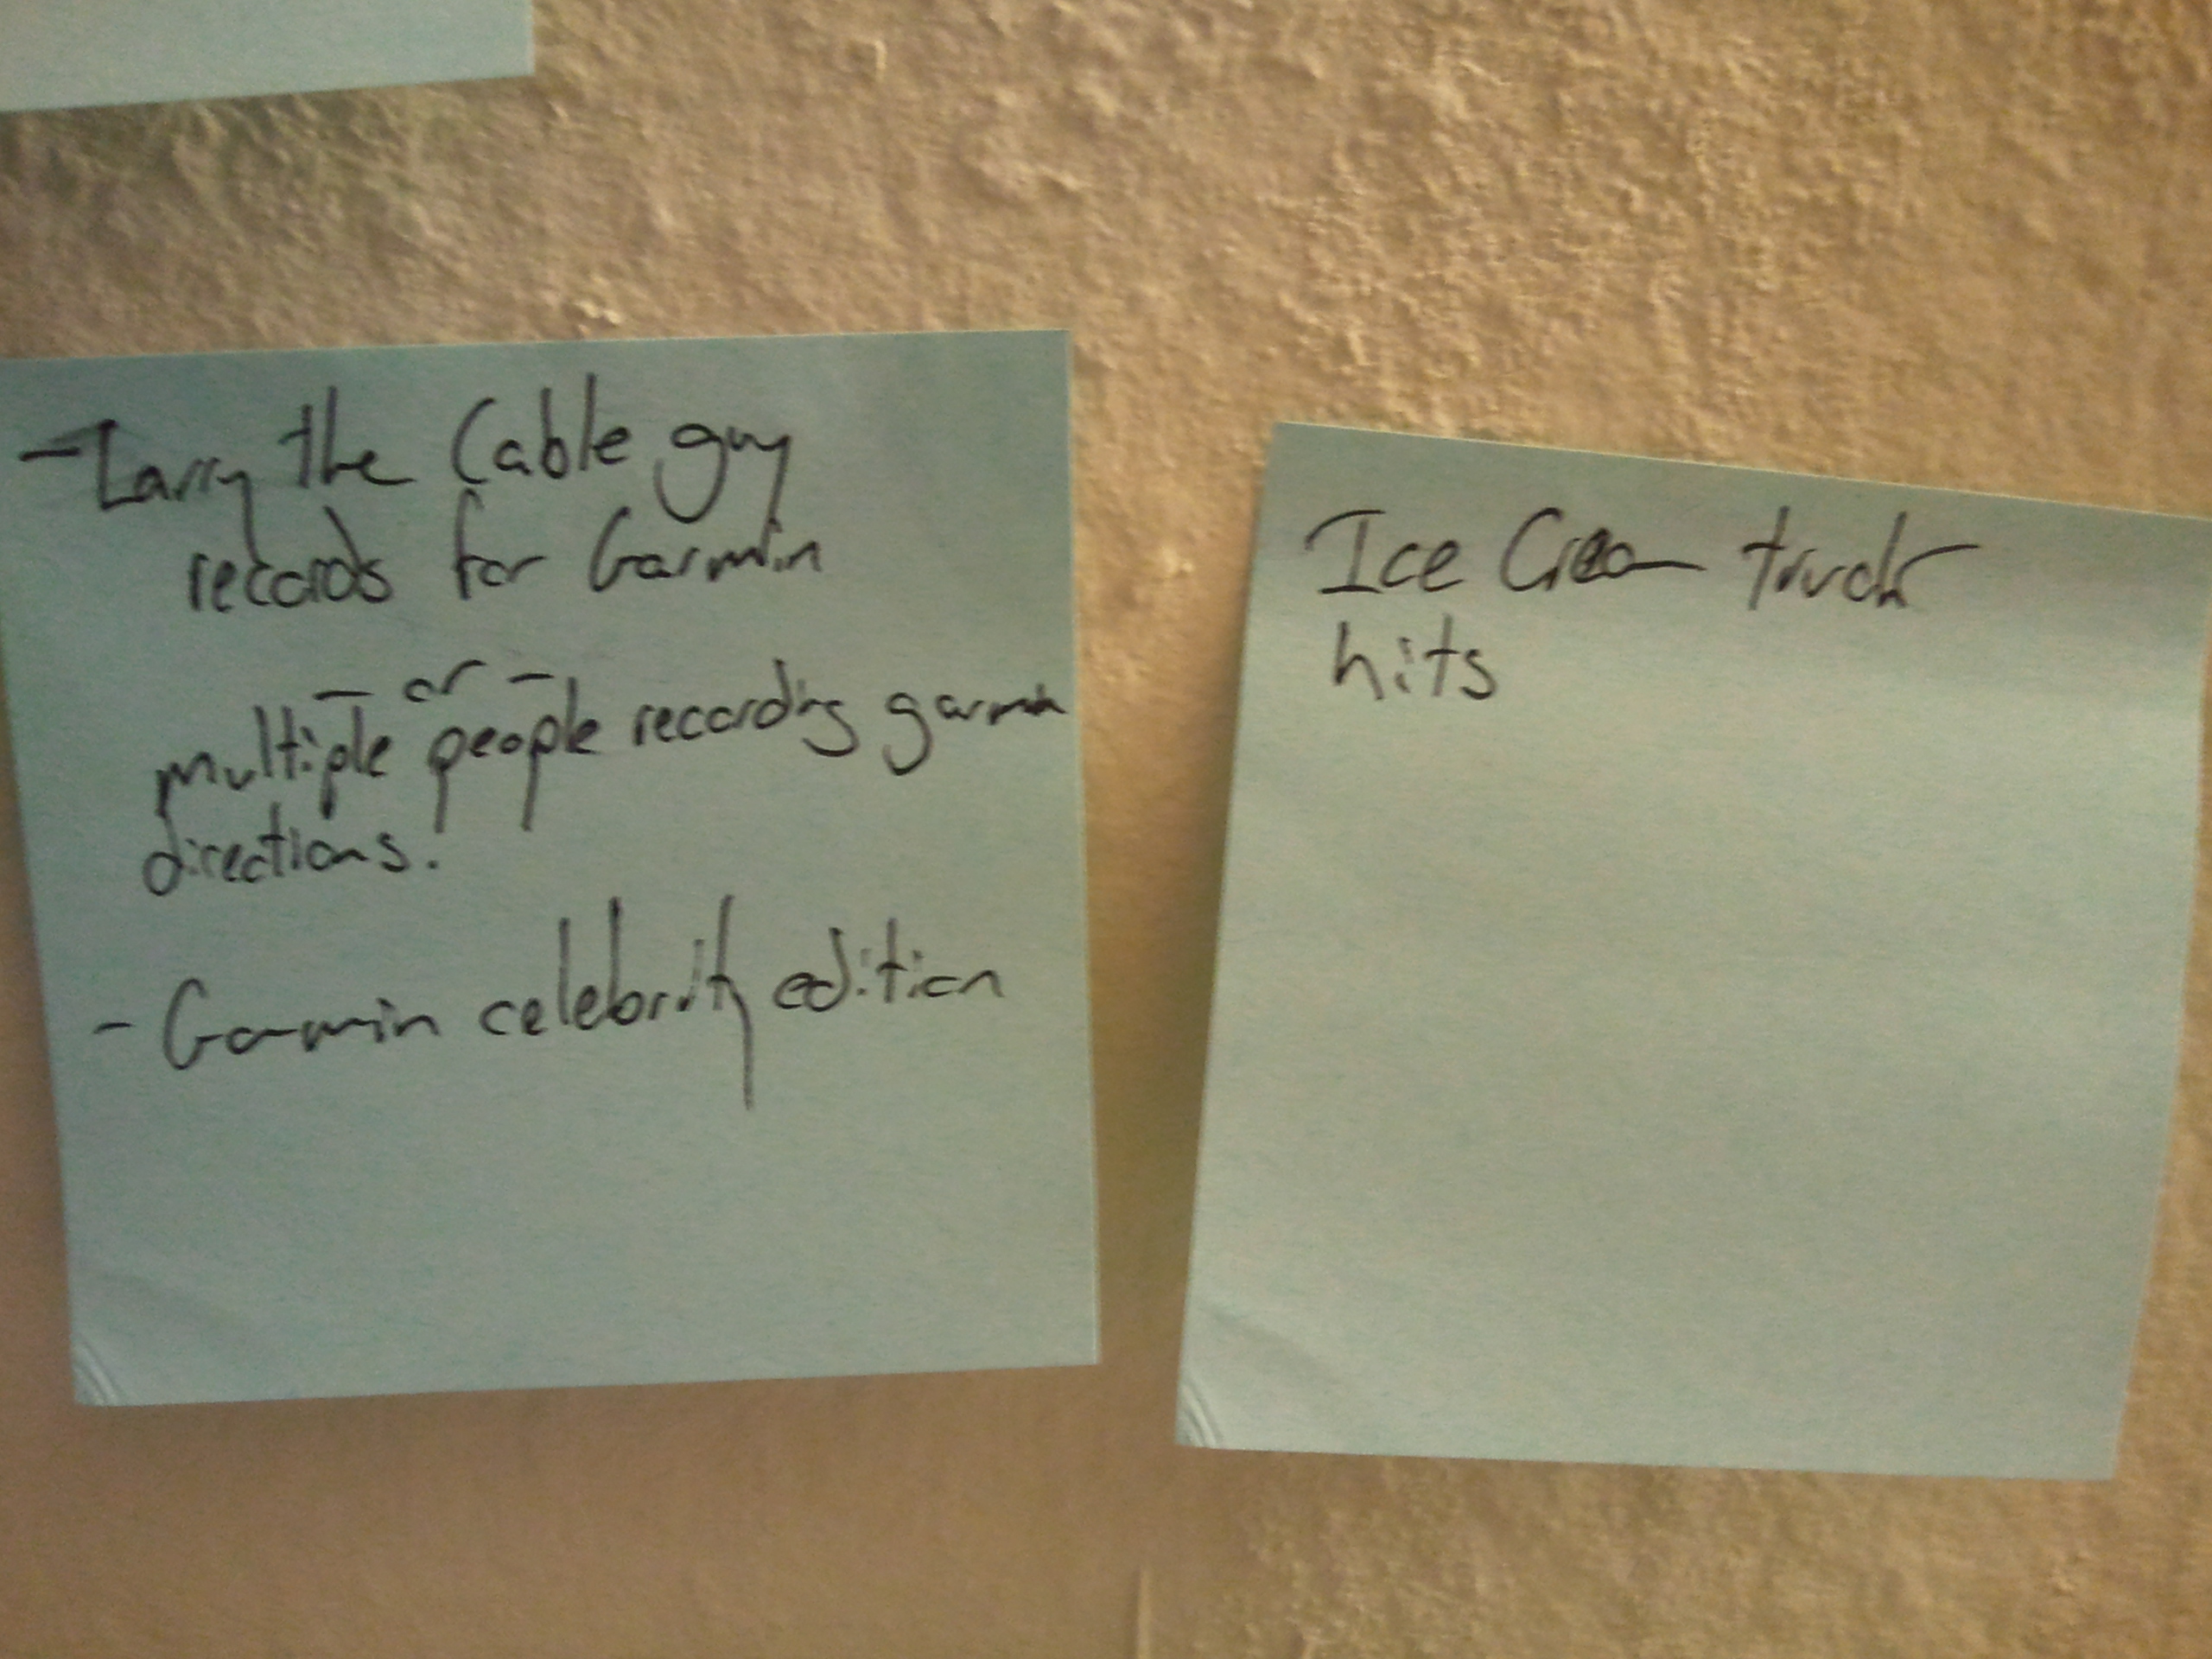 - Larry the Cable guy
records for Garmin
- or -
multiple people recording garmin
directions!
- Garmin celebrity edition
Ice Cream truck
hits